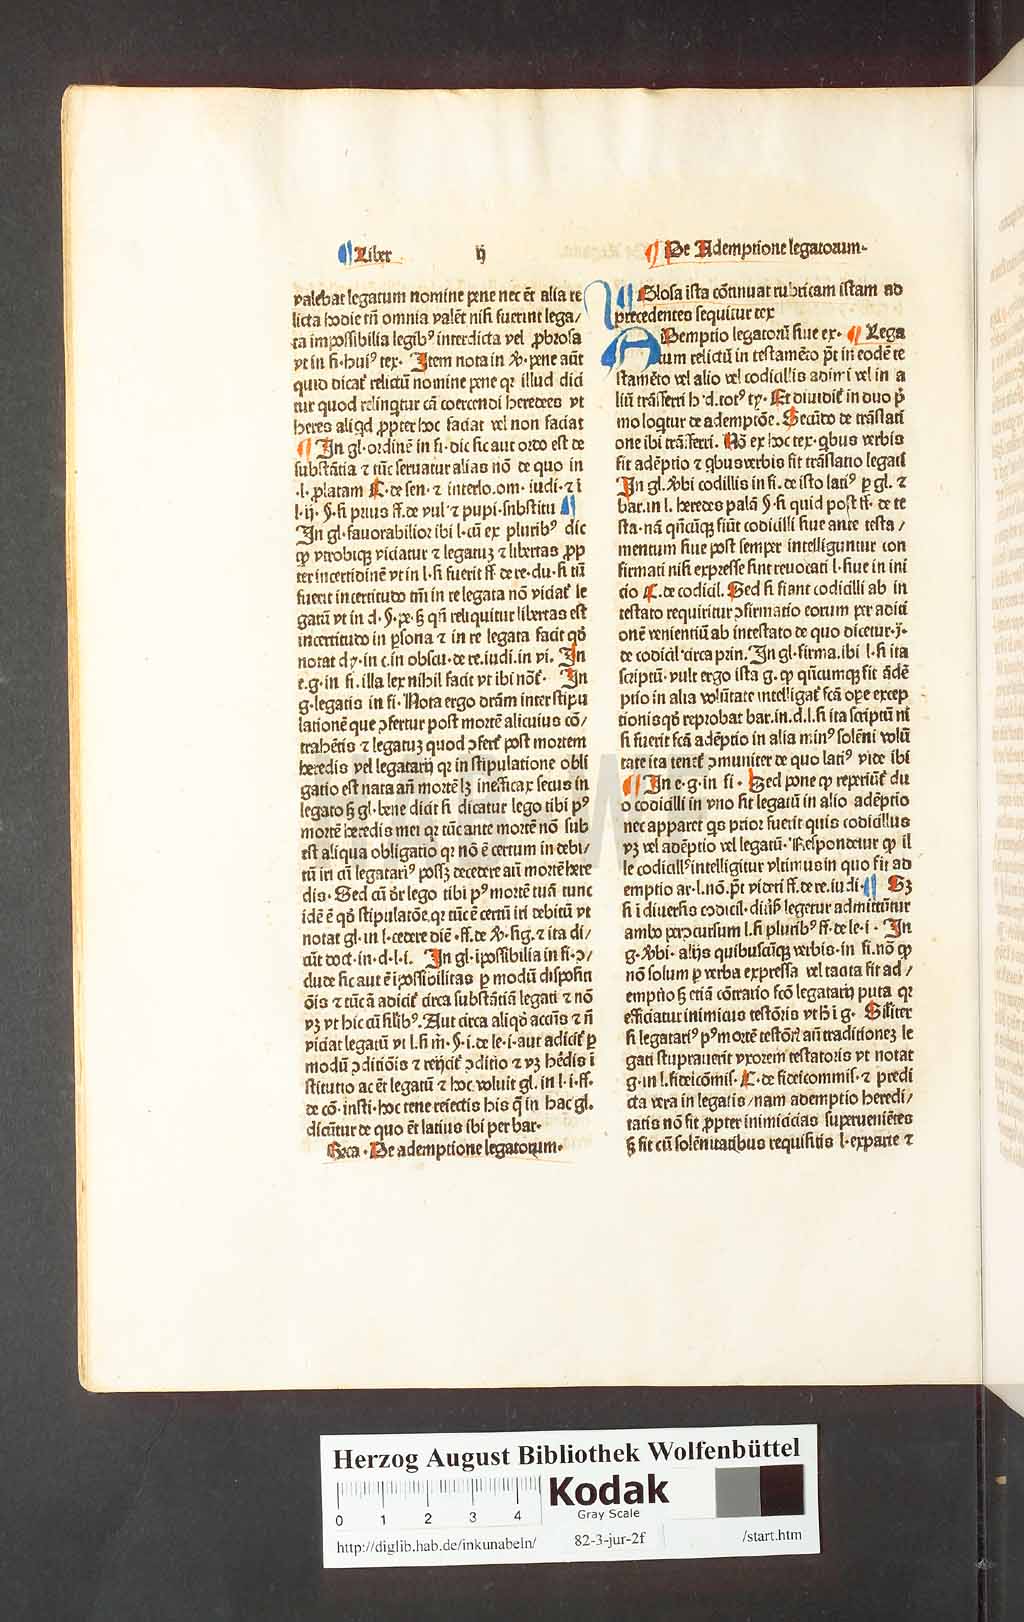 ¶ Liber ij ¶ De Ademptione legatorum.
valebat legatum nomine pene nec et̄ alia re
licta hodie tn̄ omnia valēt nisi fuerint lega/
ta impossibilia legibꝰ interdicta vel ꝓbrosa
vt in fi. huiꝰ tex. Item nota in ꝟ. pene aūt
quid dicat̄ relictū nomine pene qꝛ illud dici
tur quod relinqͥtur cā coercendi heredes vt
heres aliqͥd ꝓpter hoc faciat vel non faciat
¶ In gl. ordinē in fi. dic sic aut ordo est de
substātia ⁊ tūc seruatur alias nō de quo in
.l. ꝓlatam C. de sen. ⁊ interlo. om. iudi. ⁊ ī
l. ij. §. si prius ff. de vul. ⁊ pupi. substitu ¶
In gl. fauorabilior ibi l. cū ex pluribꝰ dic
ꝙ vtrobiqꝫ viciatur ⁊ legatuꝫ ⁊ libertas ꝓp
ter incertidinē vt in l. si fuerit ff. de re. du. si tn̄
fuerit incertitudo tm̄ in re legata nō viciat̄ le
gatū vt in d. §. pe. ꝫ qn̄ relinquitur libertas est
incertitudo in ꝑsona ⁊ in re legata facit qd̄
notat dy. in c. in obscu. de re. iudi. in vi. In
e. g. in fi. illa lex nihil facit vt ibi nōt̄. In
g. legatis in fi. Nota ergo dr̄am inter stipu
lationē que ↄfertur post mortē alicuius cō/
trahētis ⁊ legatuꝫ quod ↄfert̄ post mortem
heredis vel legatarij qꝛ in stipulatione obli
gatio est nata an̄ mortē lꝫ inefficax secus in
legato ꝫ gl. bene dicit si dicatur lego tibi pꝰ
mortē heredis mei qꝛ tūc ante mortē nō sub
est aliqua obligatio qꝛ nō ē certum in debi/
tū iri cū legatariꝰ possꝫ decedere an̄ mortē here
dis. Sed cū dr̄ lego tibi pꝰ mortē tuā tunc
idē ē qd̄ stipulatōe, qꝛ tūc ē certū iri debitū vt
notat gl. in l. cedere diē. ff. de ꝟ. sig. ⁊ ita di/
cūt doct. in. d. l. i. In gl. ipossibilia in fi. ↄ/
clude sic aut ē ipossibilitas ꝑ modū dispositi
ōis ⁊ tūc ā adicit̄ circa substātiā legati ⁊ nō
vꝫ vt hic cū silibꝰ. Aut circa aliqd̄ accn̄s ⁊ n̄
viciat legatū vt l. si m̄. §. i. de le. i. aut adicit̄ ꝑ
modū ↄditiōis ⁊ reijcit̄ ↄditio ⁊ vꝫ hēdis ī
stitutio ac et̄ legatū ⁊ hoc voluit gl. in l. i. ff.
de cō. insti. hoc tene reiectis his q̄ in hac gl.
dicūtur de quo et̄ latius ibi per bar.
Brca. De ademptione legatorum.
¶ Glosa ista cōtinuat rubricam istam ad
precedentes sequitur tex
ADemptio legatorū siue ex. ¶ Lega
tum relictū in testamēto pt̄ in eodē te
stamēto vel alio vel codicillis adimi vel in a
liū trāsferri h. d. totꝰ tꝭ. Et diuidit̄ in duo pͥ
mo loqͥtur de ademptōe. Secūdo de trāslati
one ibi trāsferri. Nō ex hoc tex. qͥbus verbis
fit adēptio ⁊ qͥbus verbis fit trāslatio legati
In gl. ꝟbi codillis in fi. de isto latiꝰ ꝑ gl. ⁊
bar. in l. heredes palā §. si quid post ff. de te
sta. nā qn̄cūqꝫ fiūt codicilli siue ante testa/
mentum siue post semper intelliguntur con
firmati nisi expresse sint reuocati l. siue in ini
cio C. de codicil. Sed si fiant codicilli ab in
testato requiritur ↄfirmatio eorum per aditi
onē venientiū ab intestato de quo dicetur. j.
de codicil. circa prin. In gl. firma. ibi l. si ita
scriptū. vult ergo ista g. ꝙ qn̄cumqꝫ fit ādē
ptio in alia volūtate intelligat̄ fcā ope excep
tionis qd̄ reprobat bar. in. d. l. si ita scriptū ni
si fuerit fcā adēptio in alia minꝰ solēni volū
tate ita tenet̄ ↄmuniter de quo latiꝰ vide ibi
¶ In e. g. in fi. Sed pone ꝙ reperiūt̄ du
o codicilli in vno fit legatū in alio adēptio
nec apparet qͥs prior fuerit quis codicillus
vꝫ vel adēptio vel legatū. Respondetur ꝙ il
le codicillꝰ intelligitur vltimus in quo fit ad
emptio ar. l. nō. pt̄ videri ff. de re. iudi. ¶ Sꝫ
si ī diuersis codicil. diūsꝭ legetur admittūtur
ambo per ↄcursum l. si pluribꝰ ff. de le. i. In
g. ꝟbi. alijs quibuscūqꝫ verbis. in fi. nō ꝙ
nō solum ꝑ verba expressa vel tacita fit ad/
emptio ꝫ etiā cōtrario fcō legatarij puta qꝛ
efficiatur inimicus testōris vt h̄ ī g. Siliter
si legatariꝰ pꝰ mortē testōrꝭ an̄ traditionez le
gati stuprauerit vxorem testatoris vt notat
g. in l. fideicōmis. C. de fideicommis. ⁊ predi
cta vera in legatis/nam ademptio heredi/
tatis nō fit ꝓpter inimicicias superueniētes
ꝫ fit cū solēnitatibus requisitis l. ex parte ⁊
Herzog August Bibliothek Wolfenbüttel
0 1 2 3 4
Kodak
Gray Scale
http://diglib.hab.de/inkunabeln/ 82-3-jur-2f /start.htm
HAB WF